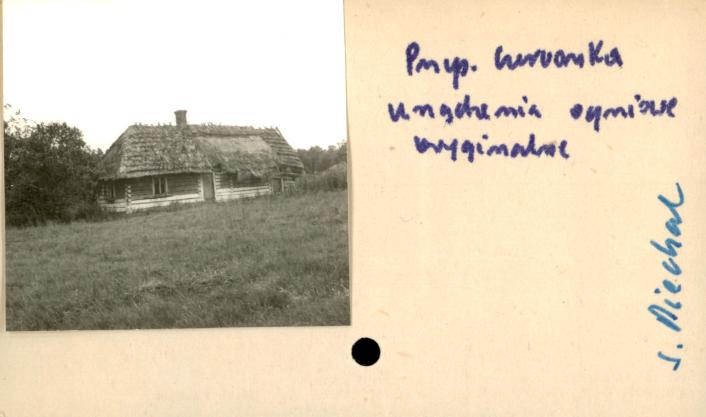 Przyp. Czworaka
urządzenia ogniowe
oryginalne
S. Piechal